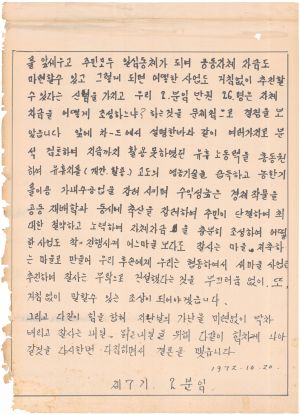 을 앞세우고 주민모두 일심동체가 되며 공동자체 자금도
마련할수 있고 그렇게 되면 어떠한 사업도 거침없이 추진할
수 있다는 신념을 가지고 우리 2분임 반원 26명은 자체
자금을 어떻게 조성하느냐? 하는것을 문제점으로 결론을 맺
았습니다 앞에 차-트에서 설명한바와 같이 여러가지로 분
석 검토하여 지금까지 활용못하였던 유휴 노동력을 총동원
하여 유휴지를 (개간, 활용) 고도의 영농기술을 습득하고 농한기
를이용 가내수공업을 장려 시키며 수익성높은 경제 작물을
공동 재배학과 동시에 축산을 장려하며 주민이 단결하여 최
대한 절약하고 노력하여 자체자금을 충분히 조성하여 어떠
한 사업도 착착 진행시켜 어느마을 보다도 잘사는 마을
는 마을로 만들어 우리 후손에게 우리는 협동하여서 새마을 사업을
추진하여 잘사는 부락으로 건설했다는 것을 부끄러움 없이 또
거침 없이 말할수 있는 조상이 되어야겠습니다.
그리고 다같이 힘을 합쳐 지난날의 가난을 미련없이 박차
버리고 잘사는 내일 밝은내일을 위해 다같이 힘차게 나아
갈것을 다시한번 다짐하면서 결론을 맺습니다
1972. 10. 20.
제7기 2분임